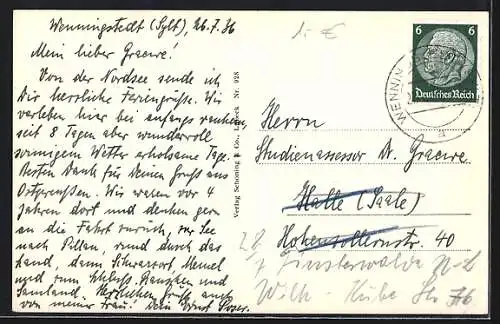 Wenningstedt (Sylt), 26.7.36
Mein lieber Graewe!
Von der Nordsee sende ich
Dir herrliche Feriengrüsse. Wir
verleben hier bei anfangs
seit 8 Tagen aber wundervoll
sonnigem Wetter erholsame Tage.
Besten Dank für Deinen Gruss aus
Ostpreußen. Wir waren vor 4
Jahren dort und denken gern
an die Fahrt zurück, zur See
nach Pillau, rund durch das
Land, dann Schwarzort, Memel
und zum Schluß Rauschen und
Samland. Herzlichen Gruß auch
von meiner Frau! Dein Ernst
Verlag Schöning & Co., Lübeck Nr. 928
1.- €
6 6
Deutsches Reich
WENNIN
a
Herrn
Studienassessor Dr. Graewe
Halle (Saale)
Hohenzollernstr. 40
Finsterwalde N-L
Wilh.-Kube Str.